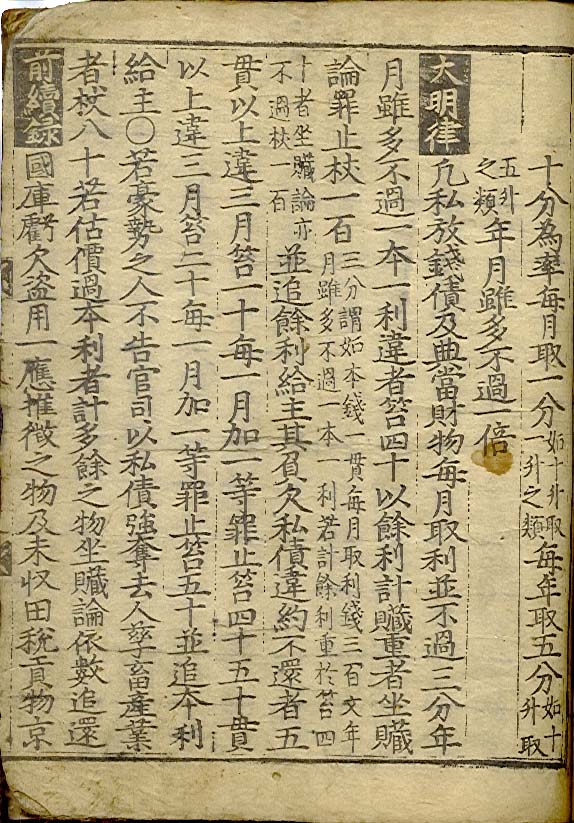 十分為率每月取一分如十升取一升之類每年取五分如十升取
五升之類年月雖多不過一倍
大明律凡私放錢債及典當財物每月取利並不過三分年
月雖多不過一本一利違者笞四十以餘利計贓重者坐贓
論罪止杖一百三分謂如本錢一貫每月取利錢三百文年月雖多不過一本一利若計餘利重於笞四
十者坐贓論亦不過杖一百並追餘利給主其負欠私債違約不還者五
貫以上違三月笞一十每一月加一等罪止笞四十五十貫
以上違三月笞二十每一月加一等罪止笞五十並追本利
給主○若豪勢之人不告官司以私債強奪去人孳畜產業
者杖八十若估價過本利者計多餘之物坐贓論依數追還
前續錄國庫虧欠盜用一應推徵之物及未収田稅貢物京